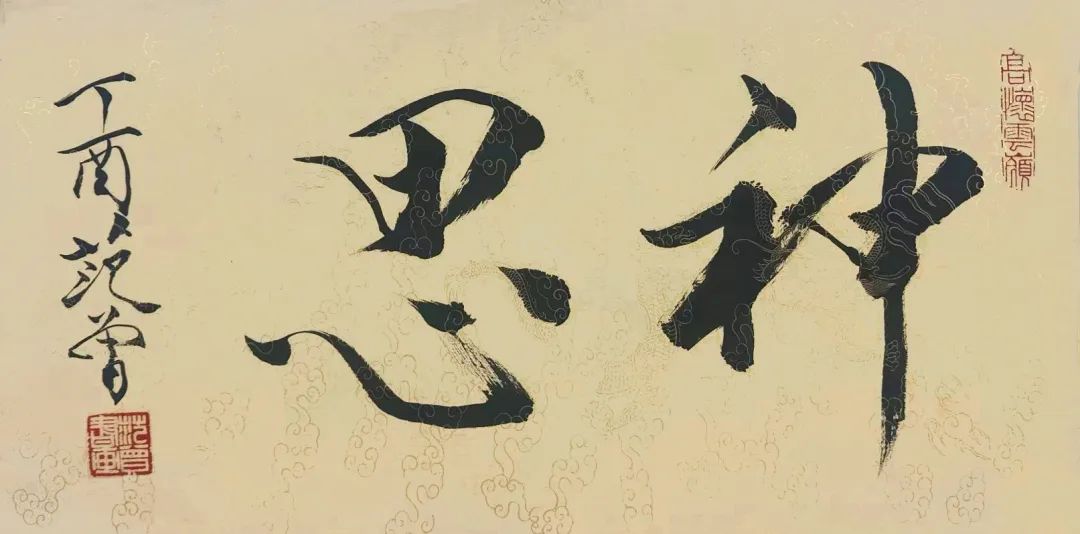 高懷雲嶺
神思
丁酉 范曾
范曾書畫